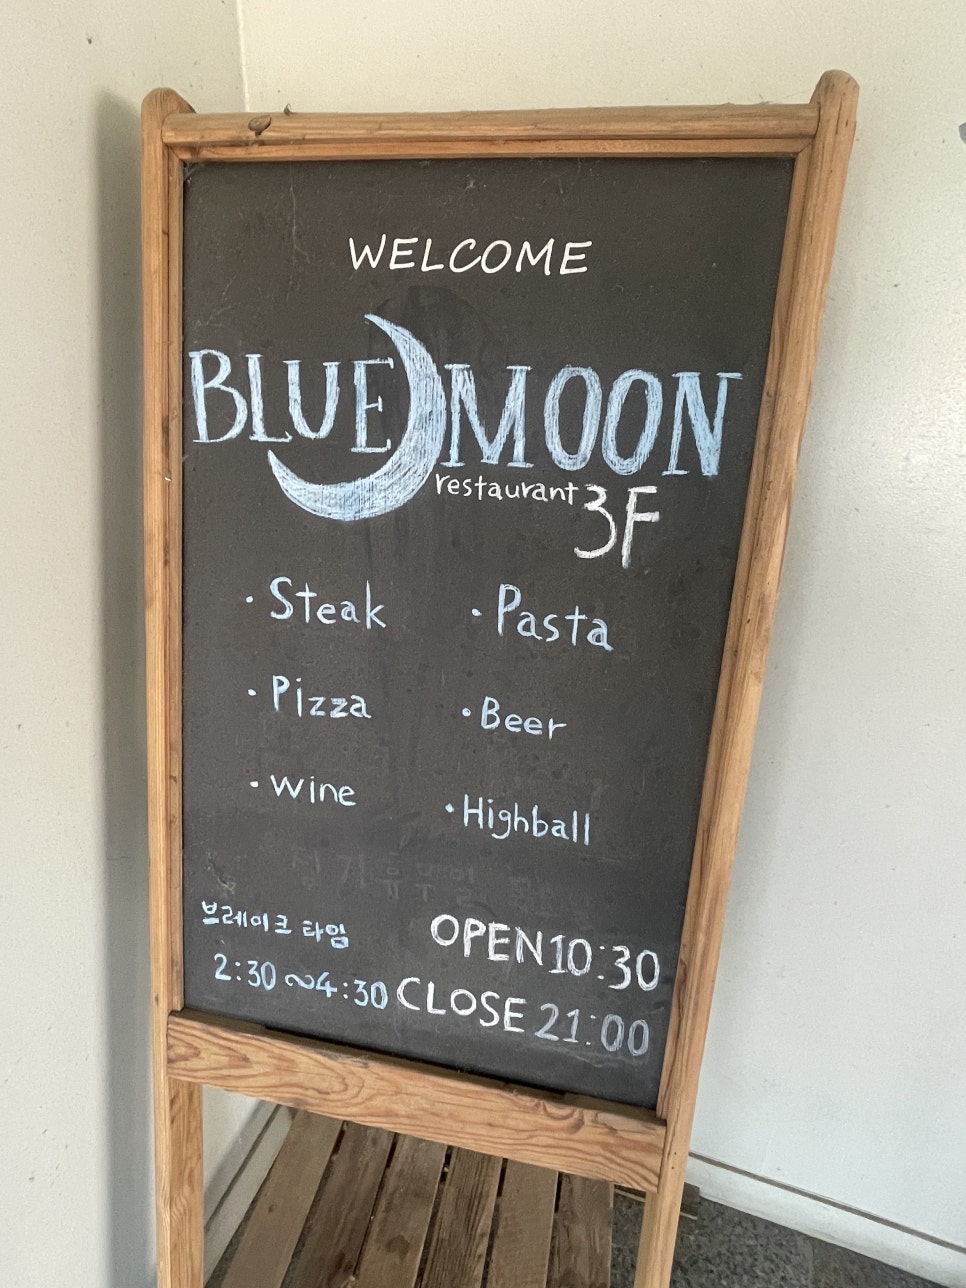 WELCOME
BLUE MOON
restaurant 3F
· Steak
· Pasta
· Pizza
· Beer
· Wine
· Highball
브레이크 타임
2:30 ~ 4:30
OPEN 10:30
CLOSE 21:00